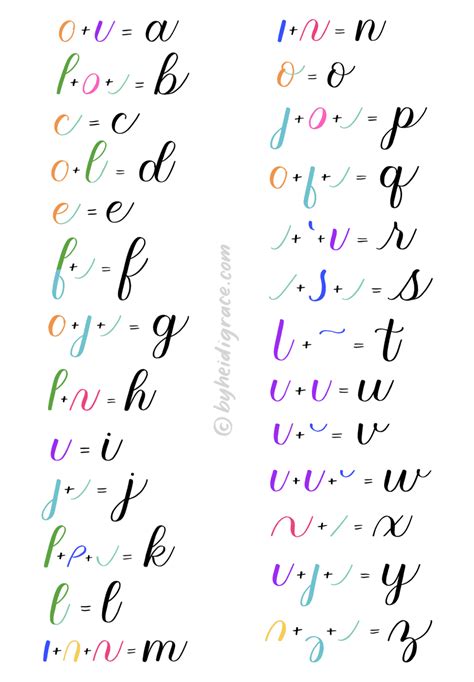 o + u = a
l + o + / = b
c = c
o + l = d
e = e
f + / = f
o + j + / = g
l + n = h
u = i
j + / = j
l + p + / = k
l = l
ı + n + n = m
ı + n = n
o = o
j + o + / = p
o + f + / = q
/ + ' + u = r
/ + s + / = s
l + ~ = t
u + u = u
u + ˘ = v
u + u + ˘ = w
n + / = x
u + j + / = y
n + 3 + / = z
© byheidigrace.com